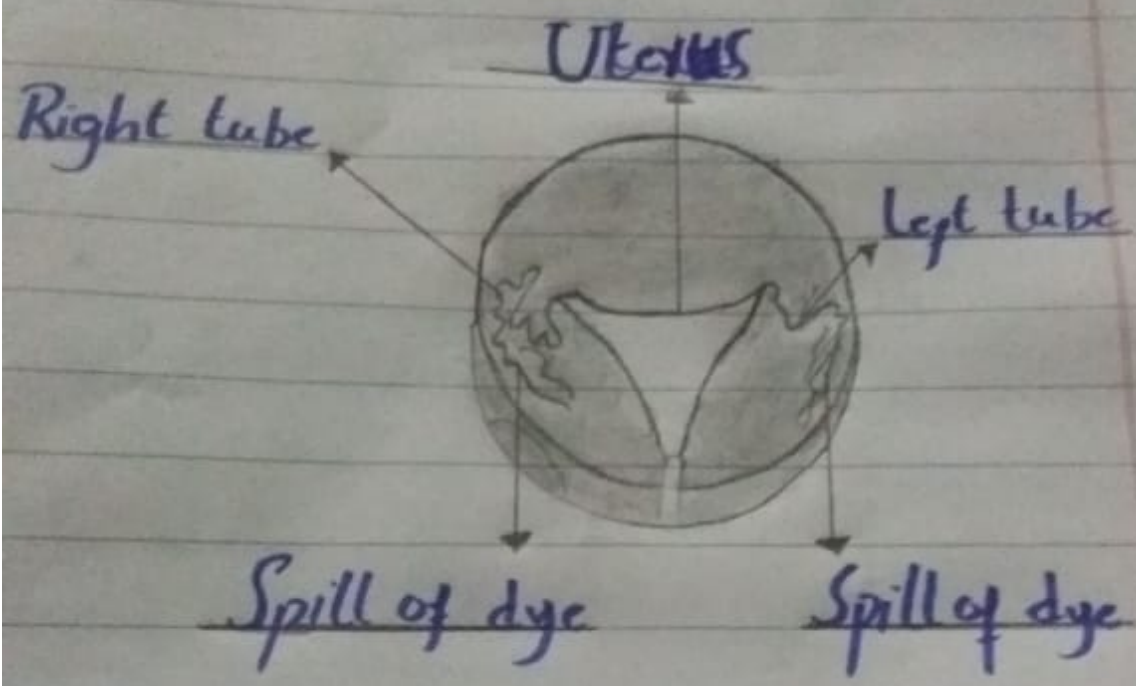 Uterus
Right tube
Left tube
Spill of dye
Spill of dye